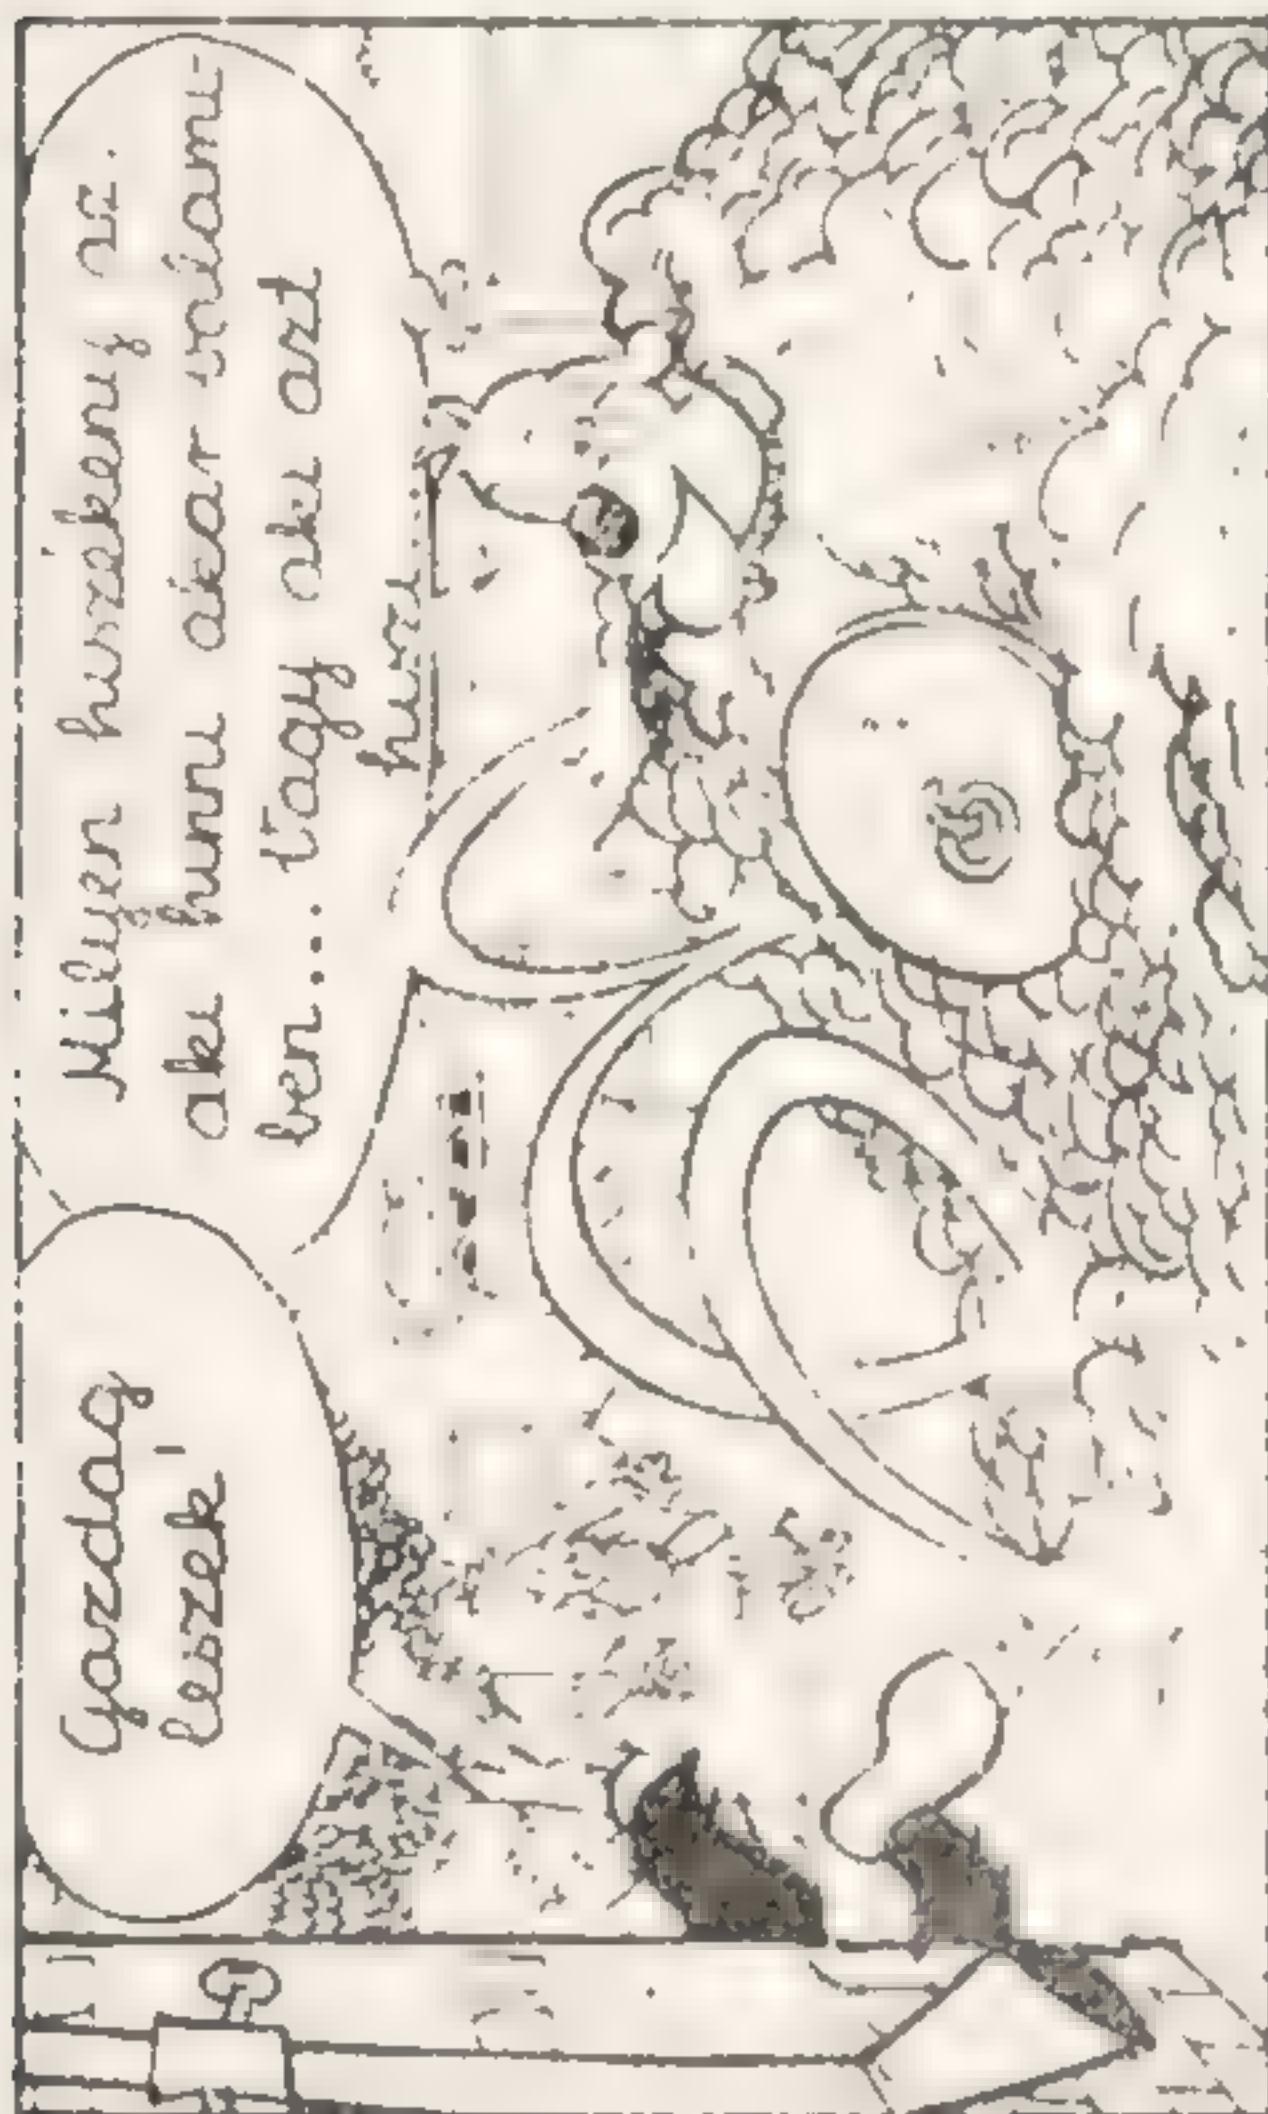 Gazdag
leszek!
Milyen hiszékeny az.
aki hinni akar valami-
ben... Vagy aki azt
hiszi....